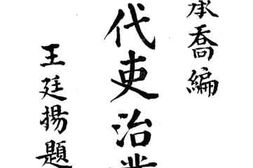 承喬編
代吏治
王廷揚題